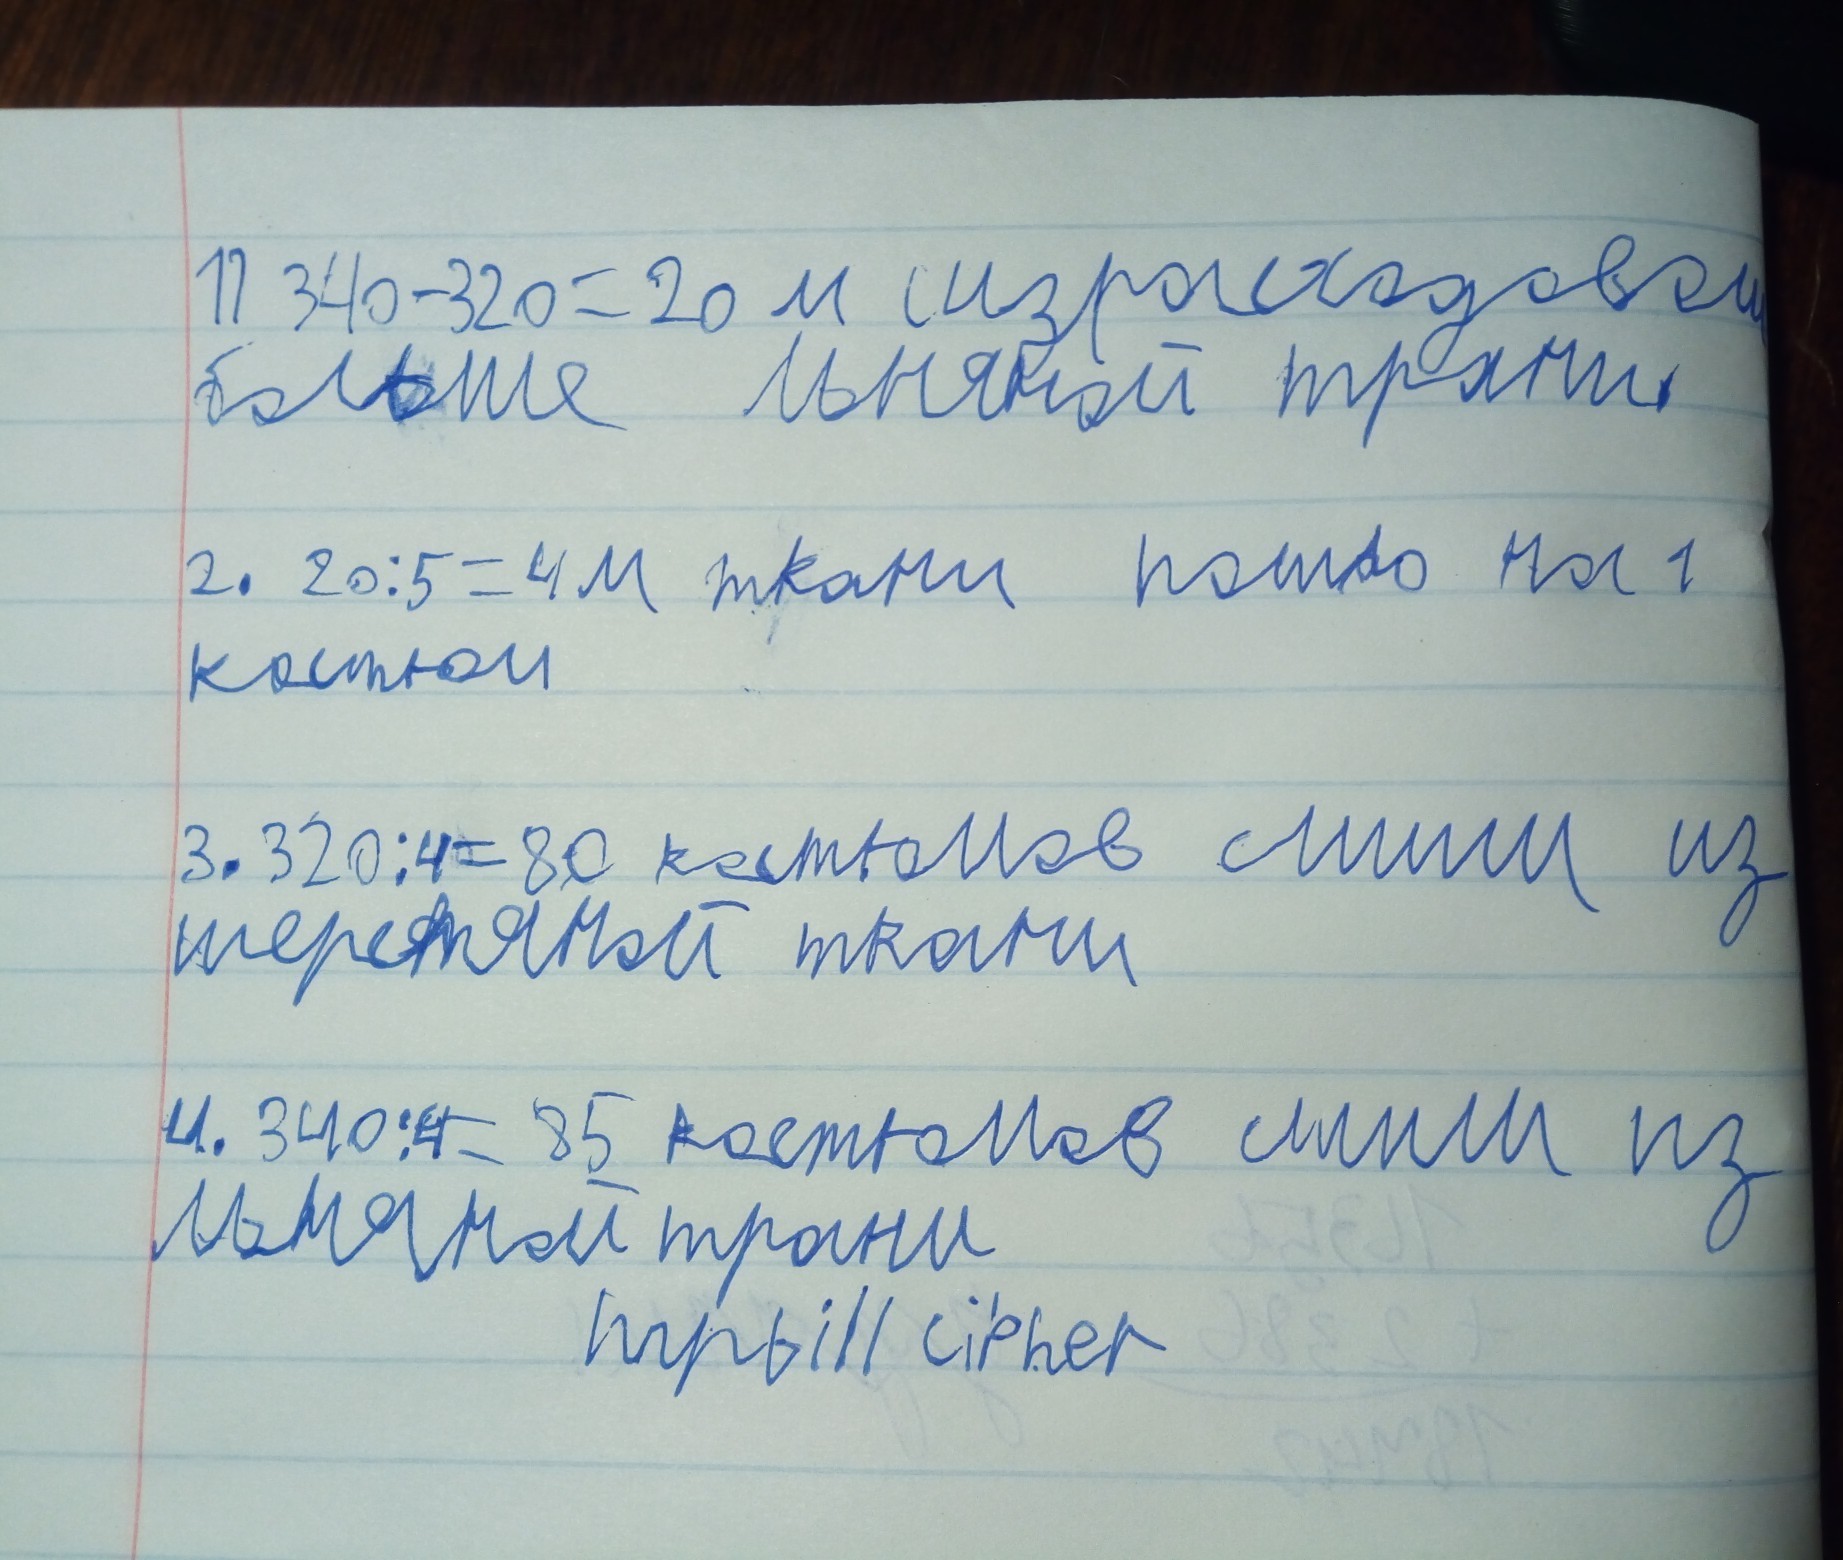 1) 340-320=20 м (израсходовали
больше льняной трани.
2. 20:5=4м ткани пошло на 1
костюм
3. 320:4=80 костюмов сшили из
шерстяной ткани
4. 340:4=85 костюмов сшили из
льняной трани
cipher